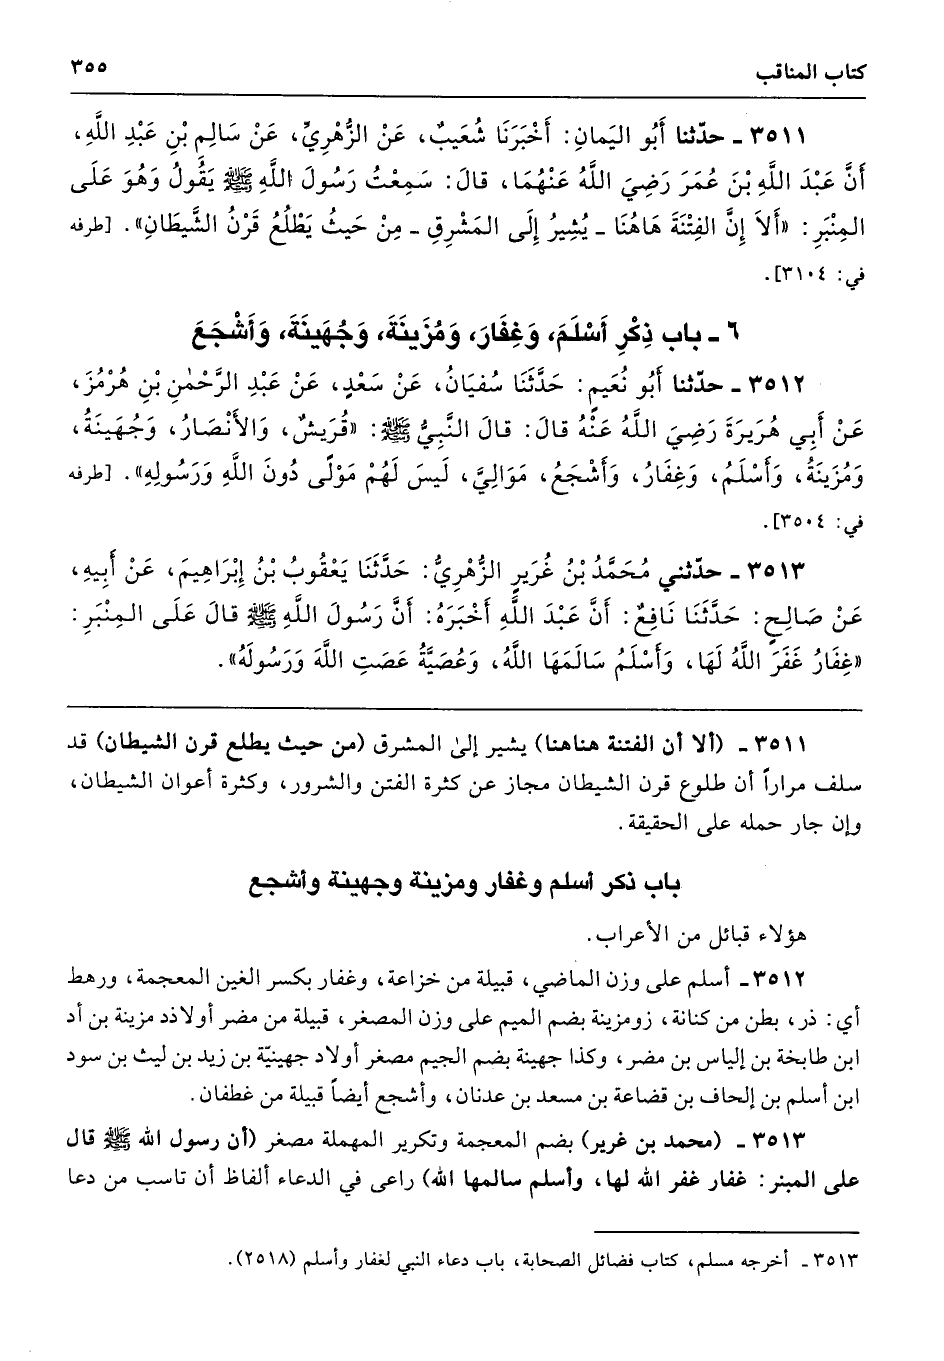 كتاب المناقب ٣٥٥
٣٥١١ ـ حدّثنا أَبُو اليَمانِ: أَخْبَرَنَا شُعَيبٌ، عَنْ الزُّهْرِيِّ، عَنْ سَالِمِ بْنِ عَبْدِ اللَّهِ،
أَنَّ عَبْدَ اللَّهِ بْنَ عُمَرَ رَضِيَ اللَّهُ عَنْهُمَا، قالَ: سَمِعْتُ رَسُولَ اللَّهِ ﷺ يَقُولُ وَهُوَ عَلَى
المِنْبَرِ: «أَلاَ إِنَّ الفِتْنَةَ هَاهُنَا ـ يُشِيرُ إِلَى المَشْرِقِ ـ مِنْ حَيثُ يَطْلُعُ قَرْنُ الشَّيطَانِ». [طرفه
في: ٣١٠٤].
٦ ـ باب ذِكْرِ أَسْلَمَ، وَغِفَارَ، وَمُزَينَةَ، وَجُهَينَةَ، وَأَشْجَعَ
٣٥١٢ ـ حدّثنا أَبُو نُعَيمٍ: حَدَّثَنَا سُفيَانُ، عَنْ سَعْدٍ، عَنْ عَبْدِ الرَّحْمٰنِ بْنِ هُرْمُزَ،
عَنْ أَبِي هُرَيرَةَ رَضِيَ اللَّهُ عَنْهُ قالَ: قالَ النَّبِيُّ ﷺ: «قُرَيشٌ، وَالأَنْصَارُ، وَجُهَينَةُ،
وَمُزَينَةُ، وَأَسْلَمُ، وَغِفَارُ، وَأَشْجَعُ، مَوَالِيَّ، لَيسَ لَهُمْ مَوْلًى دُونَ اللَّهِ وَرَسُولِهِ». [طرفه
في: ٣٥٠٤].
٣٥١٣ ـ حدّثني مُحَمَّدُ بْنُ غُرَيرٍ الزُّهْرِيُّ: حَدَّثَنَا يَعْقُوبُ بْنُ إِبْرَاهِيمَ، عَنْ أَبِيهِ،
عَنْ صَالِحٍ: حَدَّثَنَا نَافِعٌ: أَنَّ عَبْدَ اللَّهِ أَخْبَرَهُ: أَنَّ رَسُولَ اللَّهِ ﷺ قالَ عَلَى المِنْبَرِ:
«غِفَارُ غَفَرَ اللَّهُ لَهَا، وَأَسْلَمُ سَالَمَهَا اللَّهُ، وَعُصَيَّةُ عَصَتِ اللَّهَ وَرَسُولَهُ».
٣٥١١ ـ (ألا أن الفتنة هناهنا) يشير إلىٰ المشرق (من حيث يطلع قرن الشيطان) قد
سلف مراراً أن طلوع قرن الشيطان مجاز عن كثرة الفتن والشرور، وكثرة أعوان الشيطان،
وإن جار حمله على الحقيقة.
باب ذكر أسلم وغفار ومزينة وجهينة وأشجع
هؤلاء قبائل من الأعراب.
٣٥١٢ ـ أسلم على وزن الماضي، قبيلة من خزاعة، وغفار بكسر الغين المعجمة، ورهط
أي: ذر، بطن من كنانة، زومزينة بضم الميم على وزن المصغر، قبيلة من مضر أولاذد مزينة بن أد
ابن طابخة بن إلياس بن مضر، وكذا جهينة بضم الجيم مصغر أولاد جهينيّة بن زيد بن ليث بن سود
ابن أسلم بن إلحاف بن قضاعة بن مسعد بن عدنان، وأشجع أيضاً قبيلة من غطفان.
٣٥١٣ ـ (محمد بن غرير) بضم المعجمة وتكرير المهملة مصغر (أن رسول الله ﷺ قال
على المبنر: غفار غفر الله لها، وأسلم سالمها الله) راعى في الدعاء ألفاظ أن تاسب من دعا
٣٥١٣ ـ أخرجه مسلم، كتاب فضائل الصحابة، باب دعاء النبي لغفار وأسلم (٢٥١٨).